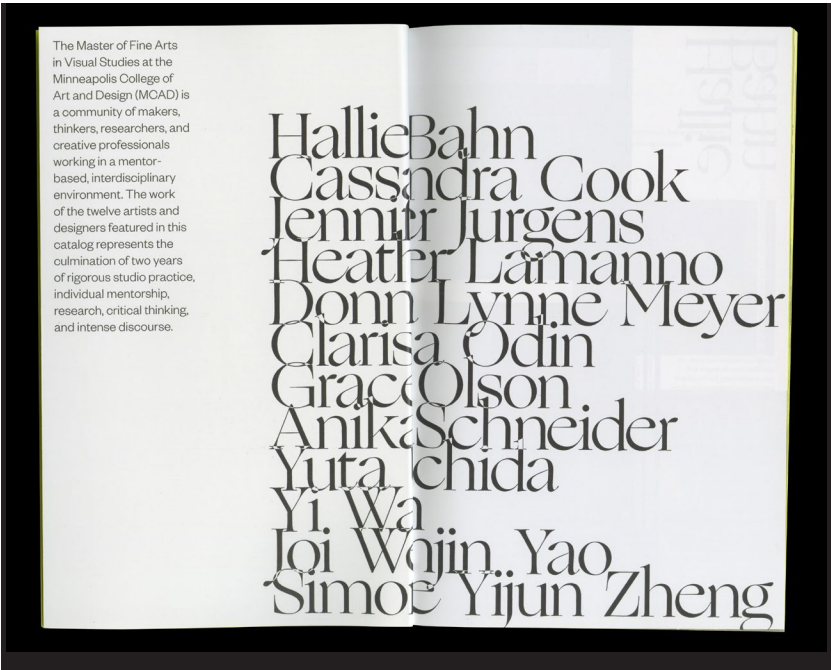 The Master of Fine Arts
in Visual Studies at the
Minneapolis College of
Art and Design (MCAD) is
a community of makers,
thinkers, researchers, and
creative professionals
working in a mentor-
based, interdisciplinary
environment. The work
of the twelve artists and
designers featured in this
catalog represents the
culmination of two years
of rigorous studio practice,
individual mentorship,
research, critical thinking,
and intense discourse.
Hallie Bahn
Cassandra Cook
Jurgens
Lamanno
Lynne Meyer
Odin
Grace Olson
Anika Schneider
Yuta
Yi
Joi Yao
Yijun Zheng